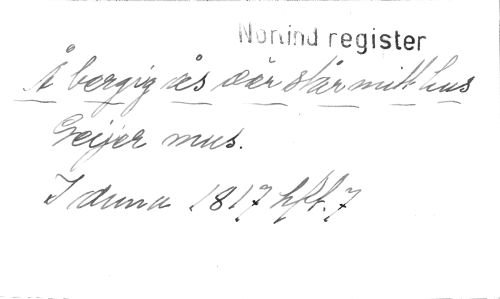 Norlind register
Å bergig ås där står mitt hus
Geijer mus.
Iduna 1817 hft. 7